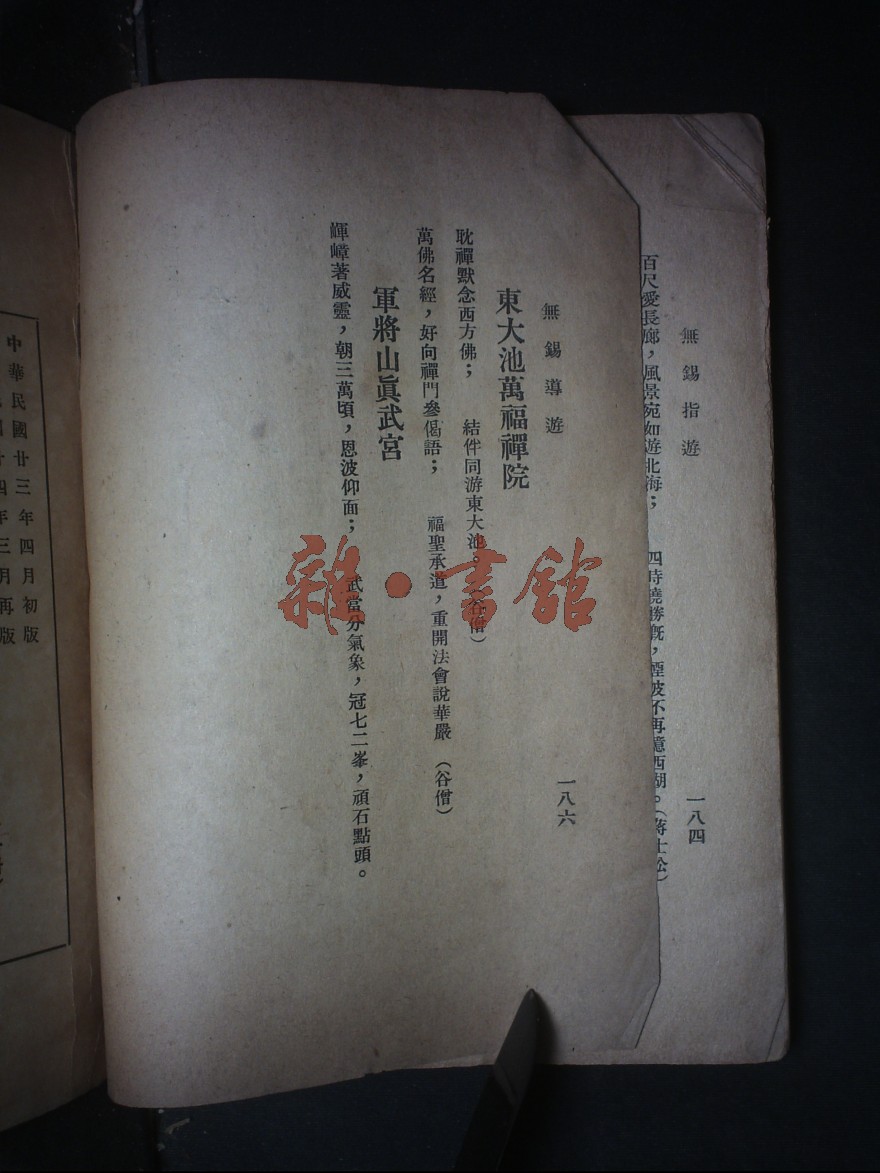 無錫指遊
一八四
百尺愛長廊，風景宛如遊北海；　四時饒勝槪，煙波不再憶西湖。（蔣士松）
無錫導遊
一八六
東大池萬福禪院
耽禪默念西方佛；　結伴同游東大池。（谷僧）
萬佛名經，好向禪門參偈語；　福聖承道，重開法會說華嚴　（谷僧）
軍將山眞武宮
皹嶂著威靈，朝三萬頃，恩波仰面；　武當分氣象，冠七二峯，頑石點頭。
雜·書館
中華民國廿三年四月初版
四年三月再版